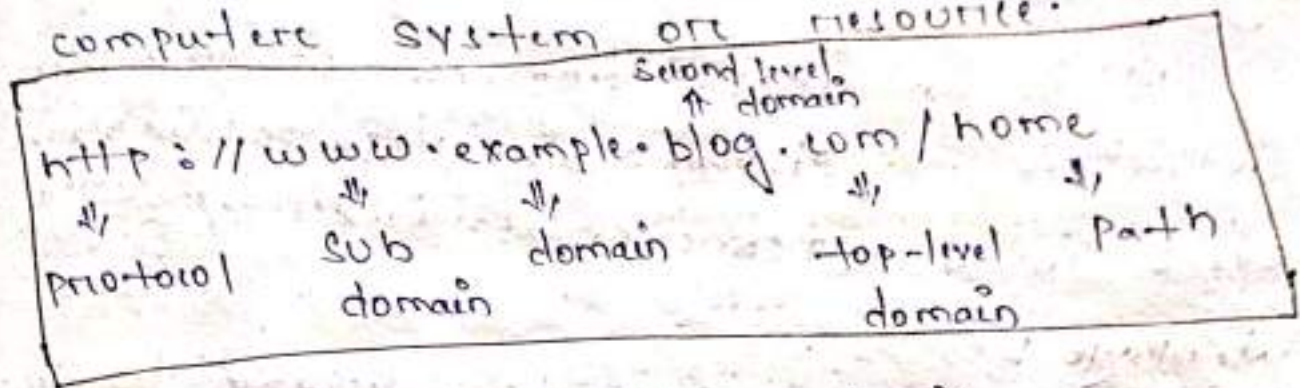 computer system or resource.
second level
domain
http://www.example.blog.com/home
protocol
sub
domain
domain
top-level
domain
Path